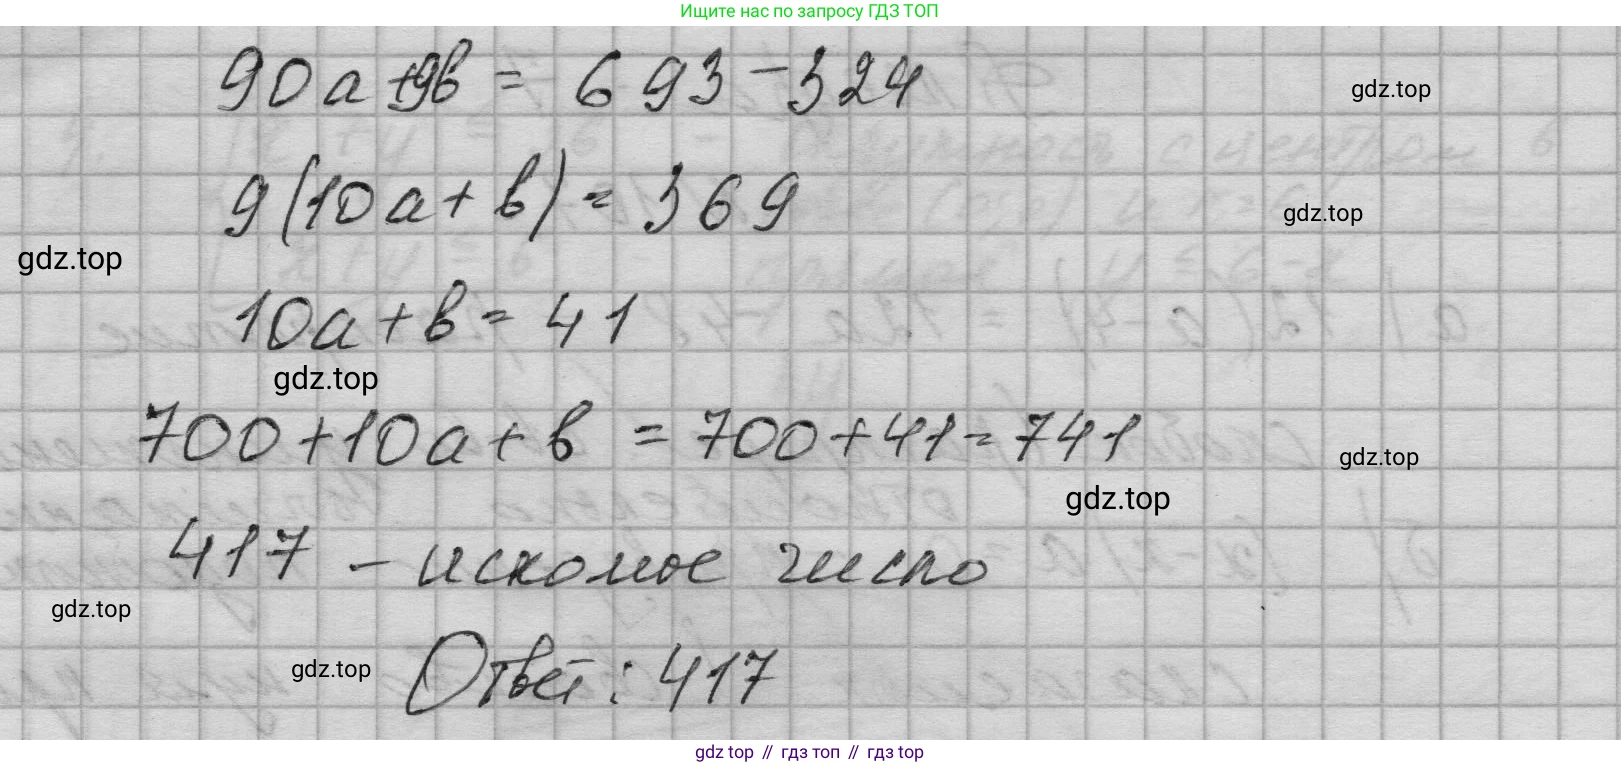 Ищите нас по запросу ГДЗ ТОП
90a+9b = 693-324
gdz.top
9(10a+b) = 369
gdz.top
gdz.top
10a+b = 41
gdz.top
700+10a+b = 700+41=741
gdz.top
gdz.top
417 - искомое число
gdz.top
gdz.top
Ответ: 417
gdz top // гдз топ // гдз top